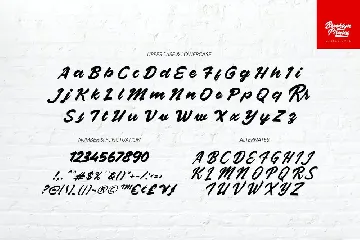 Brooklyn
UPPERCASE & LOWERCASE
Aa Bb Cc Dd Ee Ff Gg Hh Ii
Jj Kk Ll Mm Nn Oo Pp Qq Rr
Ss Tt Uu Vv Ww Xx Yy Zz
NUMBER & PUNCTUATION
1234567890
ALTERNATES
A B C D E F G H I J
K L M N O P Q R S
T U V W X Y Z